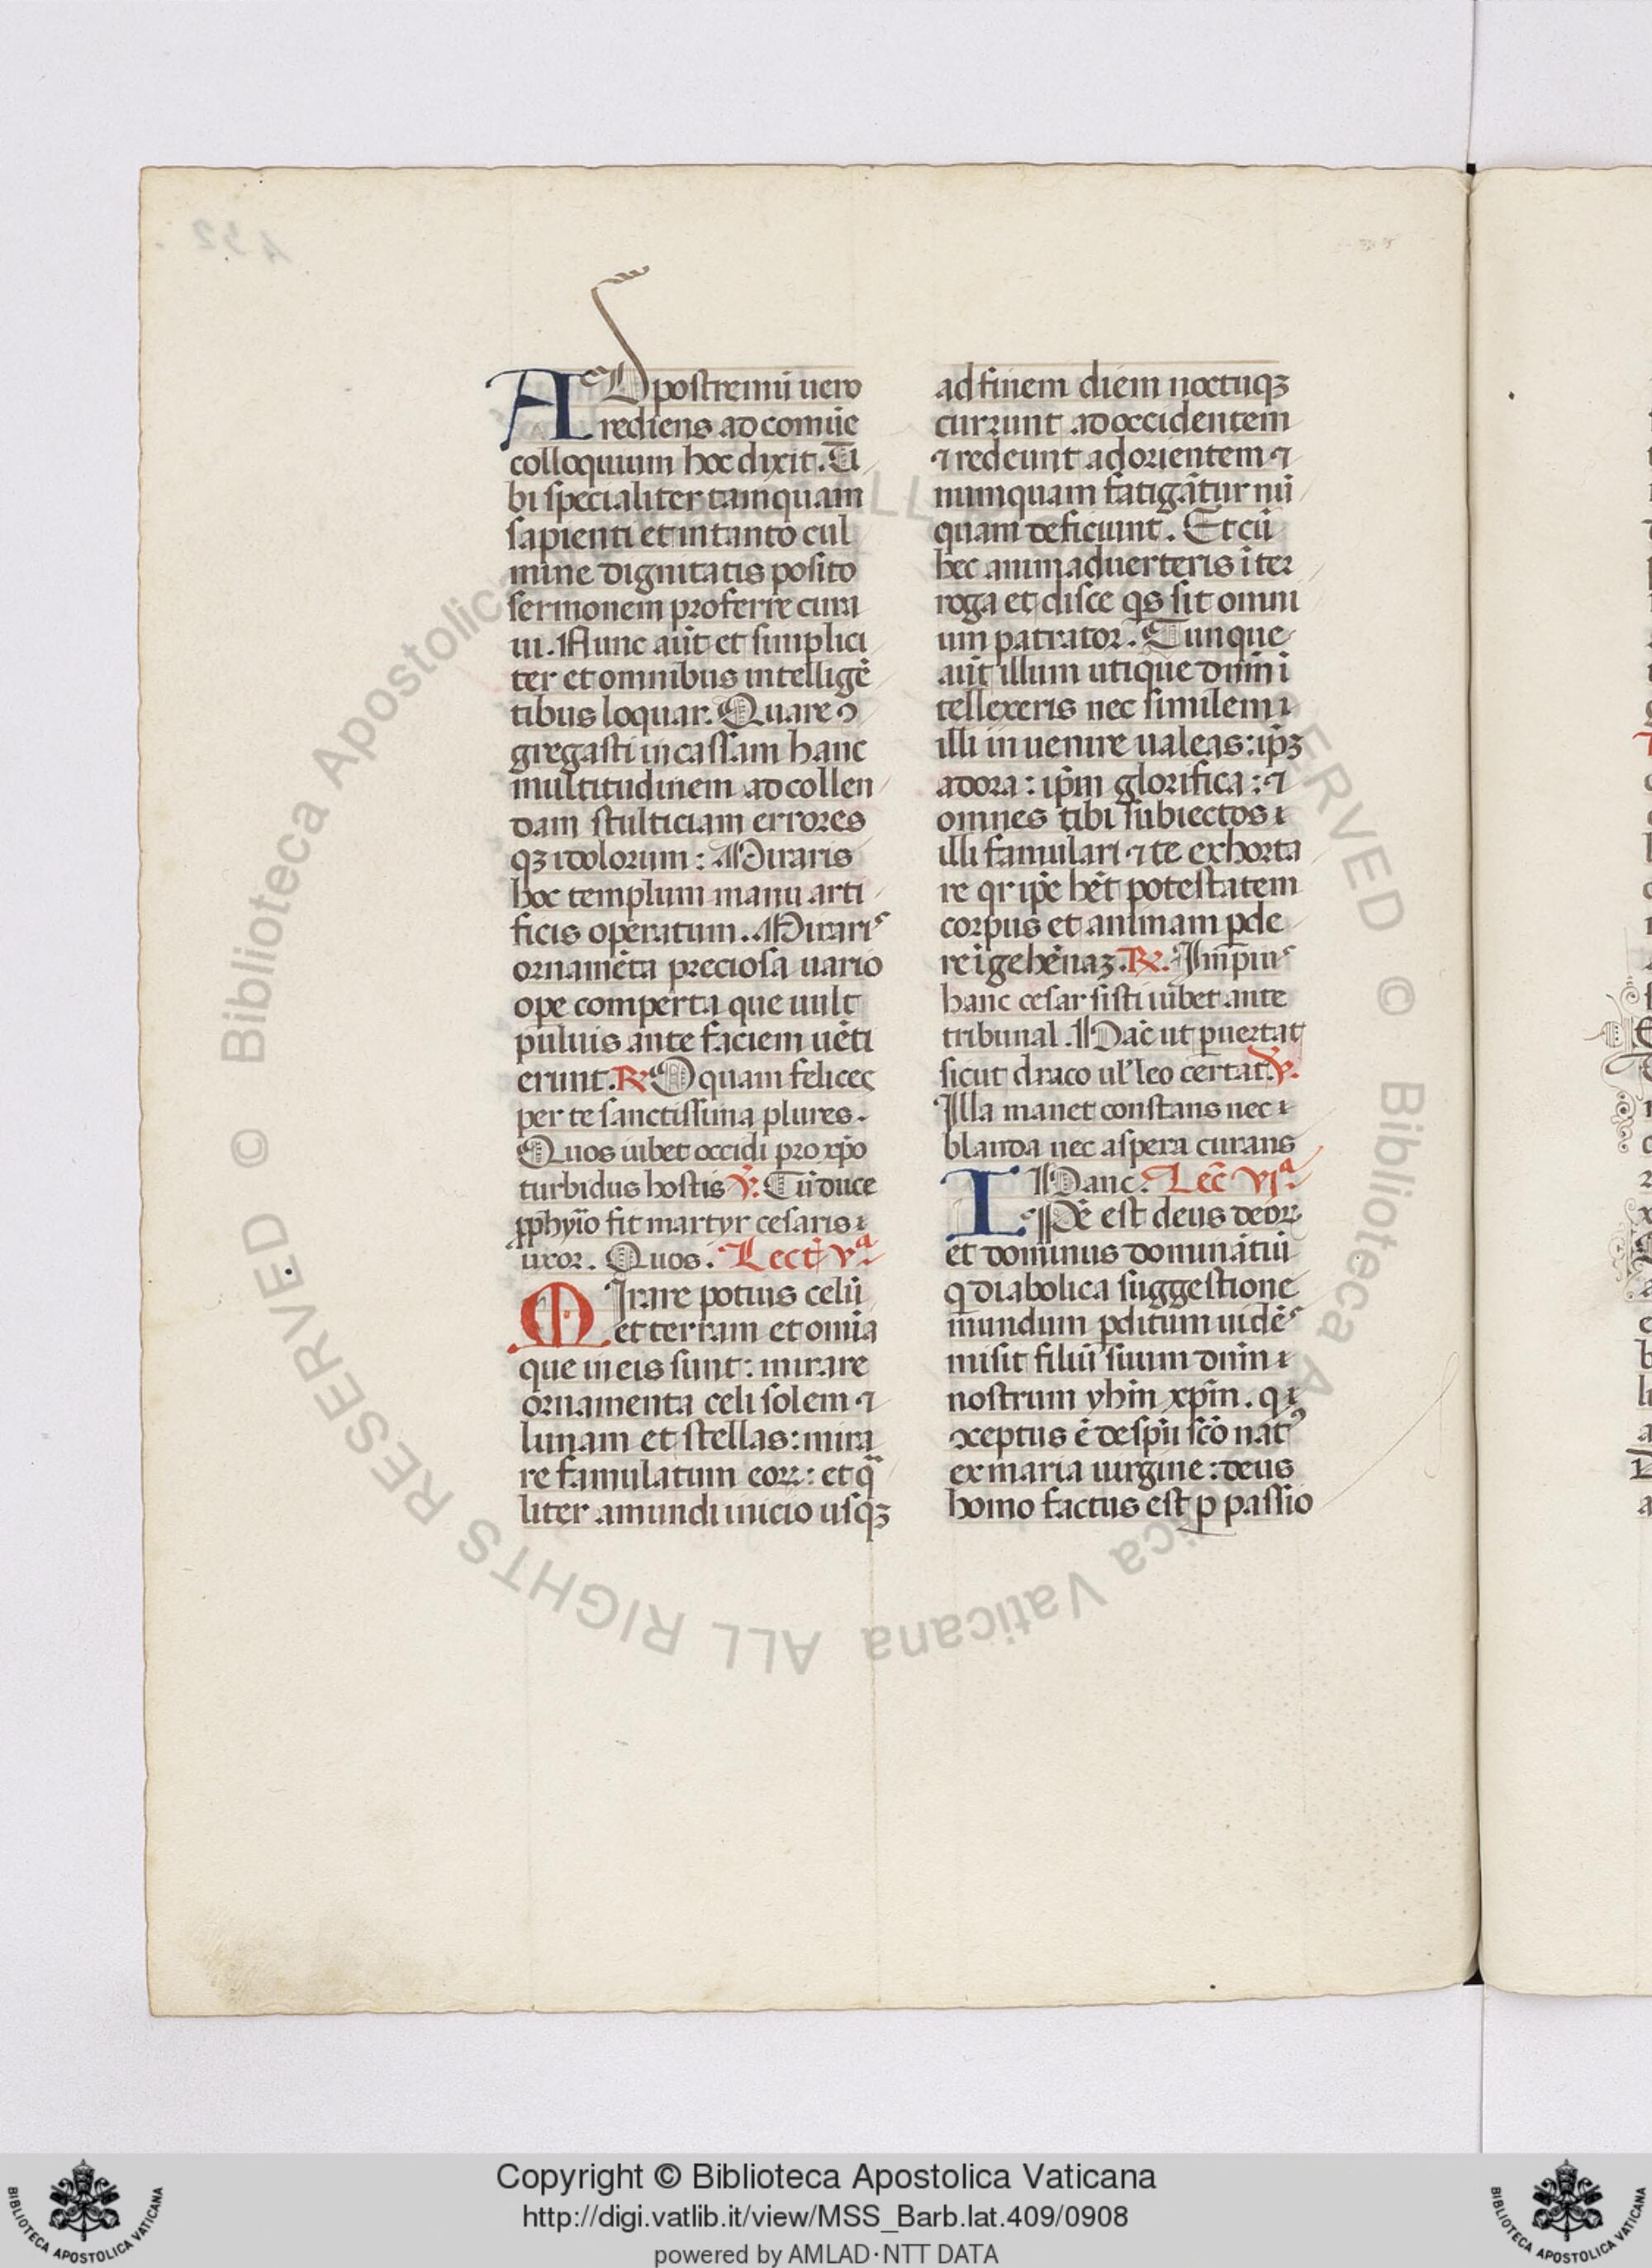 AD postremũ uero
rediens ad comũe
colloquium hoc dixit. Ti
bi specialiter tamquam
sapienti et in tanto cul
mine dignitatis posito
sermonem proferre cura
ui. Nunc aũt et simplici
ter et omnibus intelligẽ
tibus loquar. Quare ↄ
gregasti in cassam hanc
multitudinem ad collen
dam stulticiam errores
qꝫ idolorum: Miraris
hoc templum manu arti
ficis operatum. Miraris
ornamẽta preciosa uario
ope comperta que uult
puluis ante faciem uẽti
erunt. ℟ O quam felices
per te sanctissima plures.
Quos iubet occidi pro xp̃o
turbidus hostis ℣. Tũ duce
pphyĩo fit martyr cesaris
uxor. Quos. Lect̃ vª.
Mirare potius celũ
et terram et om̃ia
que in eis sunt: mirare
ornamenta celi solem ⁊
lunam et stellas: mira
re famulatum eoꝝ: et qͣ
liter a mundi inicio usqꝫ
ad finem diem noctuqꝫ
currunt ad occidentem
⁊ redeunt ad orientem ⁊
numquam fatigãtur nũ
quam deficiunt. Et cũ
hec animaduerteris ĩter
roga et disce qͥs sit omni
um patrator. Tunque
aũt illum utique dñm ĩ
tellexeris nec similem
illi inuenire ualeas: ip̃ꝫ
adora: ip̃m glorifica: ⁊
omnes tibi subiectos
illi famulari ⁊ te exhorta
re qr ip̃e hẽt potestatem
corpus et animam pde
re ĩ gehẽnaꝫ. ℟. Imp̃ius
hanc cesar sisti iubet ante
tribunal. Hãc ut puertat
sicut draco ul' leo certat. ℣.
Illa manet constans nec
blanda nec aspera curans
Hanc. Lec̃ vjª.
Ip̃e est deus deoꝝ
et dominus dominãtiũ
q diabolica suggestione
mundum pditum uidẽs
misit filiũ suum dñm
nostrum yhm̃ xp̃m. qͥ
ↄceptus ẽ de sp̃u sc̃o natꝰ
ex maria uirgine: deus
homo factus est ꝑ passio
Copyright © Biblioteca Apostolica Vaticana
http://digi.vatlib.it/view/MSS_Barb.lat.409/0908
powered by AMLAD·NTT DATA
BIBLIOTECA APOSTOLICA VATICANA
BIBLIOTECA APOSTOLICA VATICANA
© Biblioteca Apostolica Vaticana ALL RIGHTS RESERVED